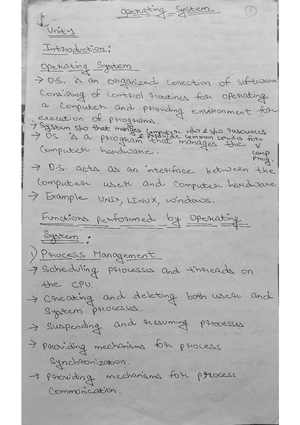 Operating System
1
Unit-1
Introduction:
Operating System
→ O.S. is an organized collection of software
consisting of control routines for operating
a computer and providing environment for
execution of programs
→ System s/w that manages computer h/w & s/w resources
& provide common services for
→ OS is a program that manages the
comp
prog.
computer hardware.
→ O.S. acts as an interface between the
computer user and computer hardware
→ Example UNIX, LINUX, windows.
Functions performed by Operating
System:
1) Process Management
→ Scheduling processes and threads on
the CPU.
→ Creating and deleting both user and
system processes.
→ Suspending and resuming processes
→ Providing mechanisms for process
synchronization.
→ Providing mechanisms for process
commonication.